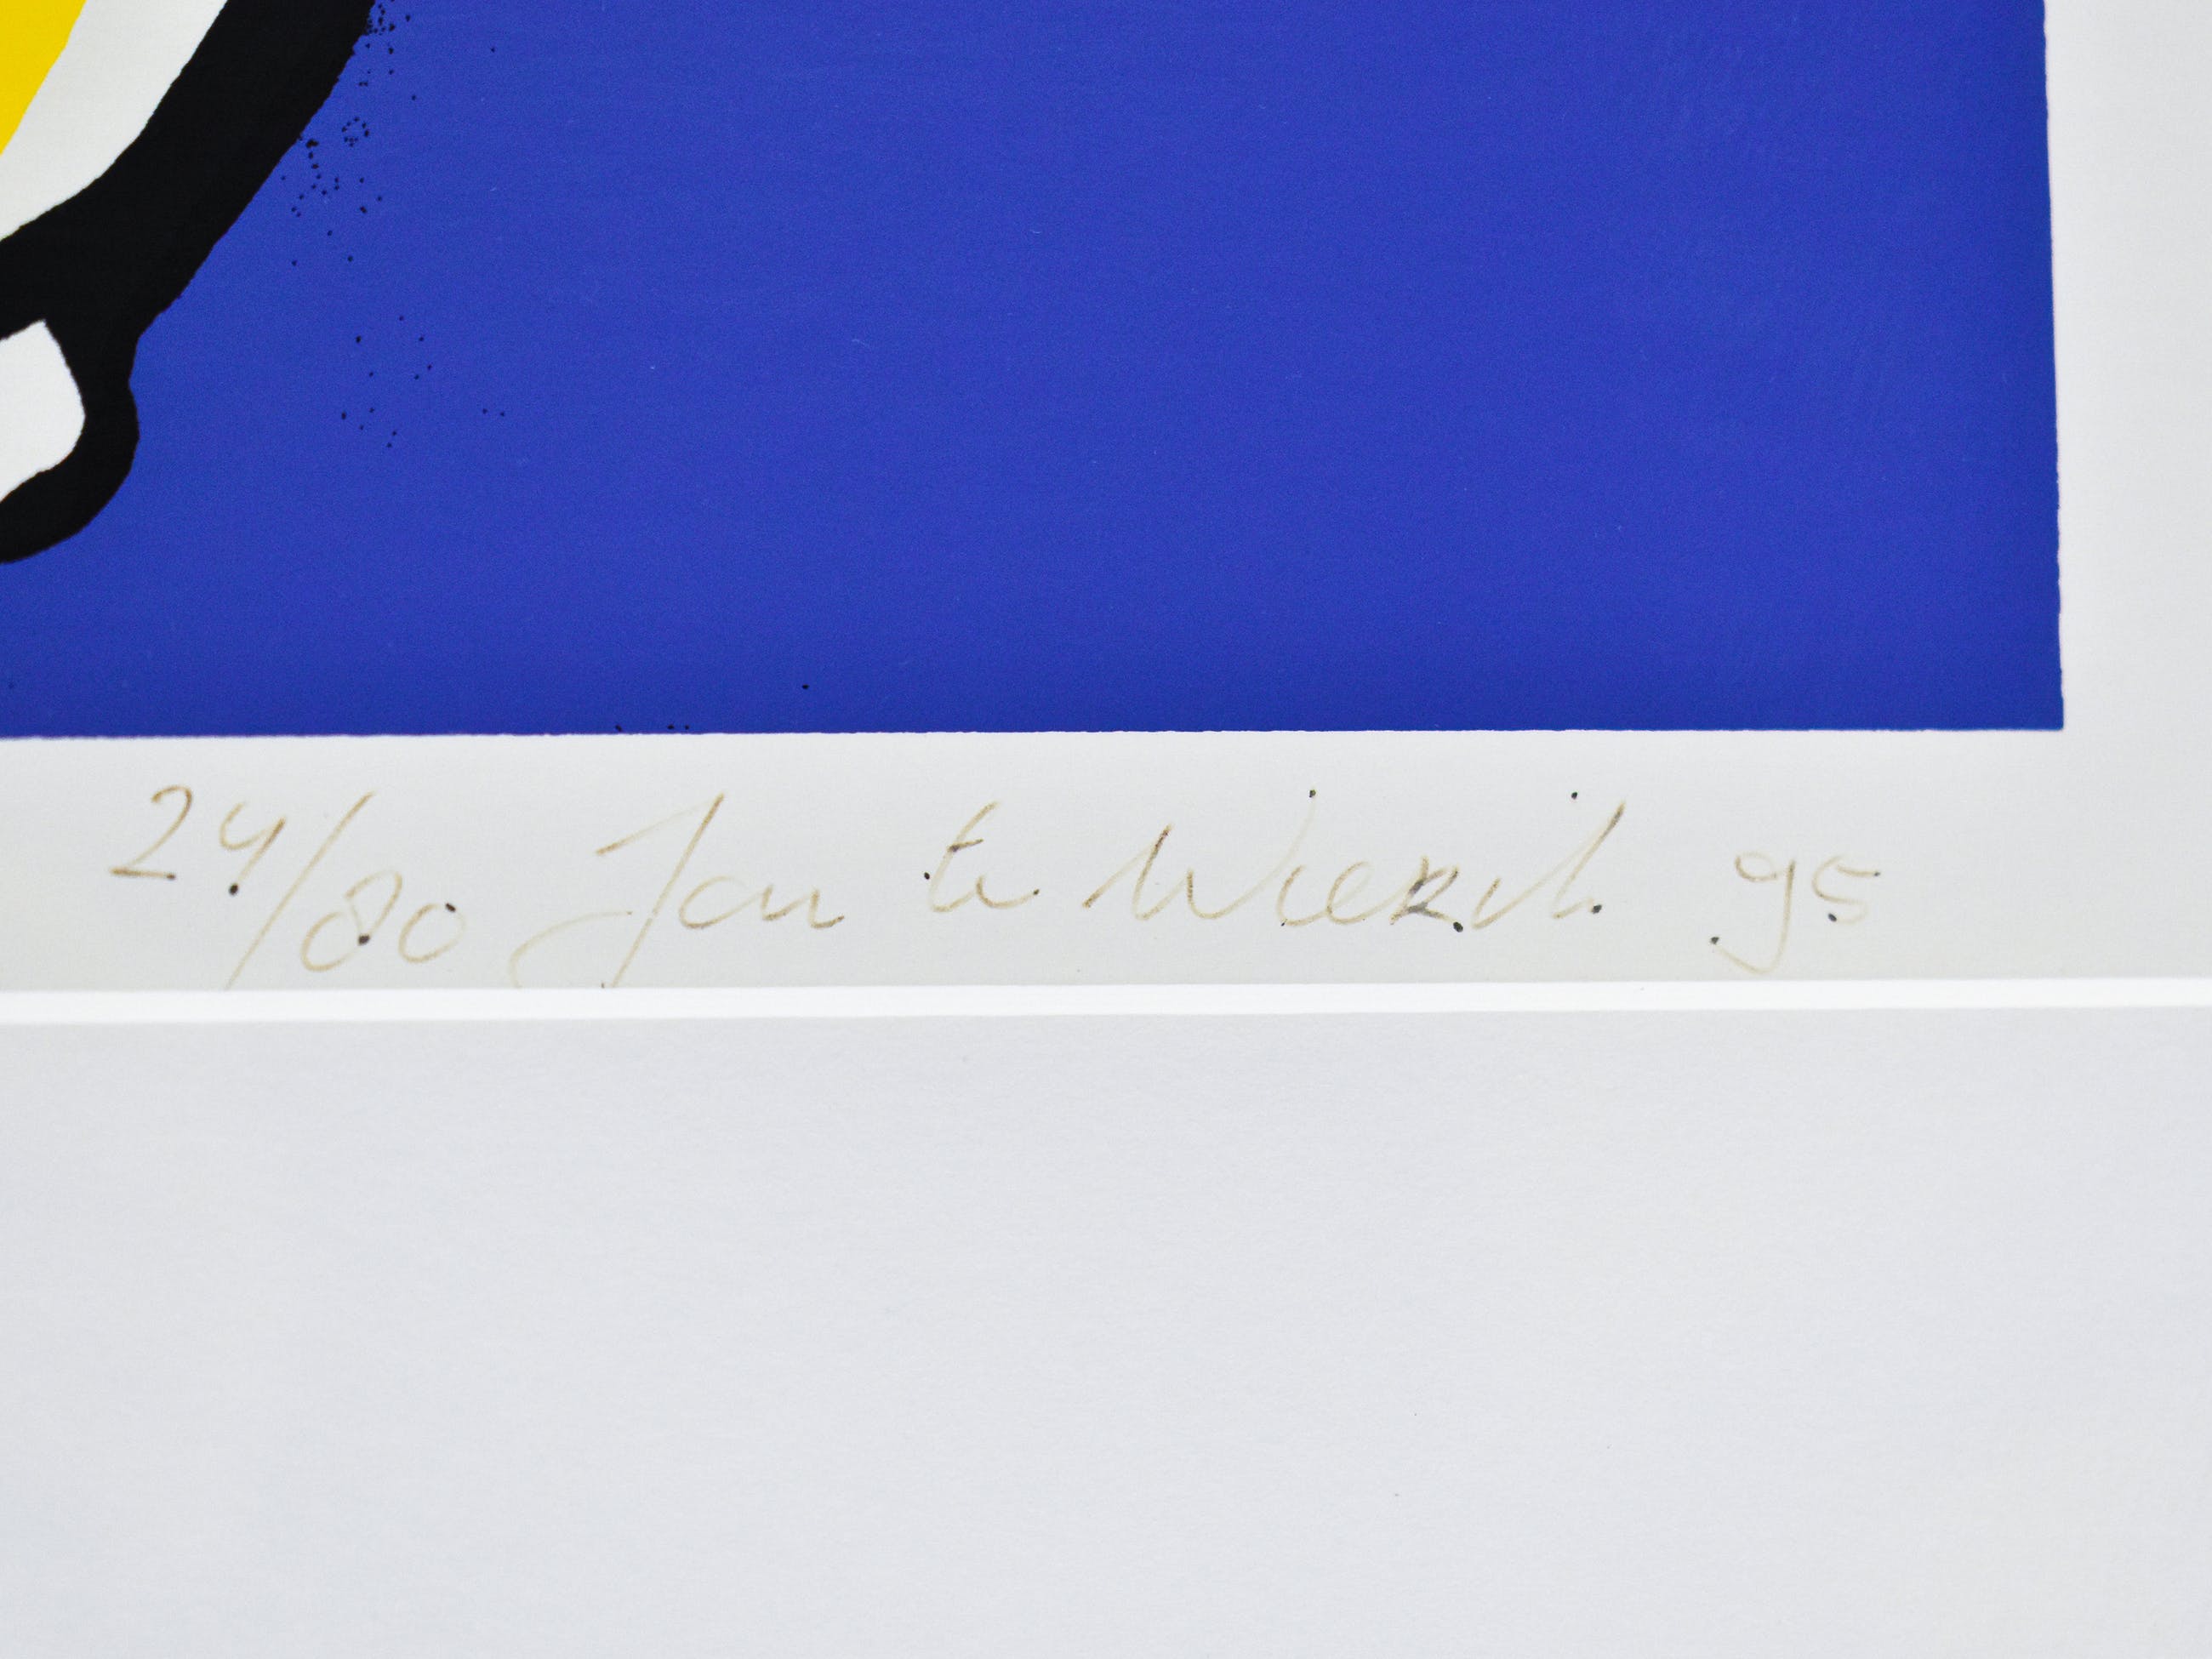 24/80 Jan te Wierik 95